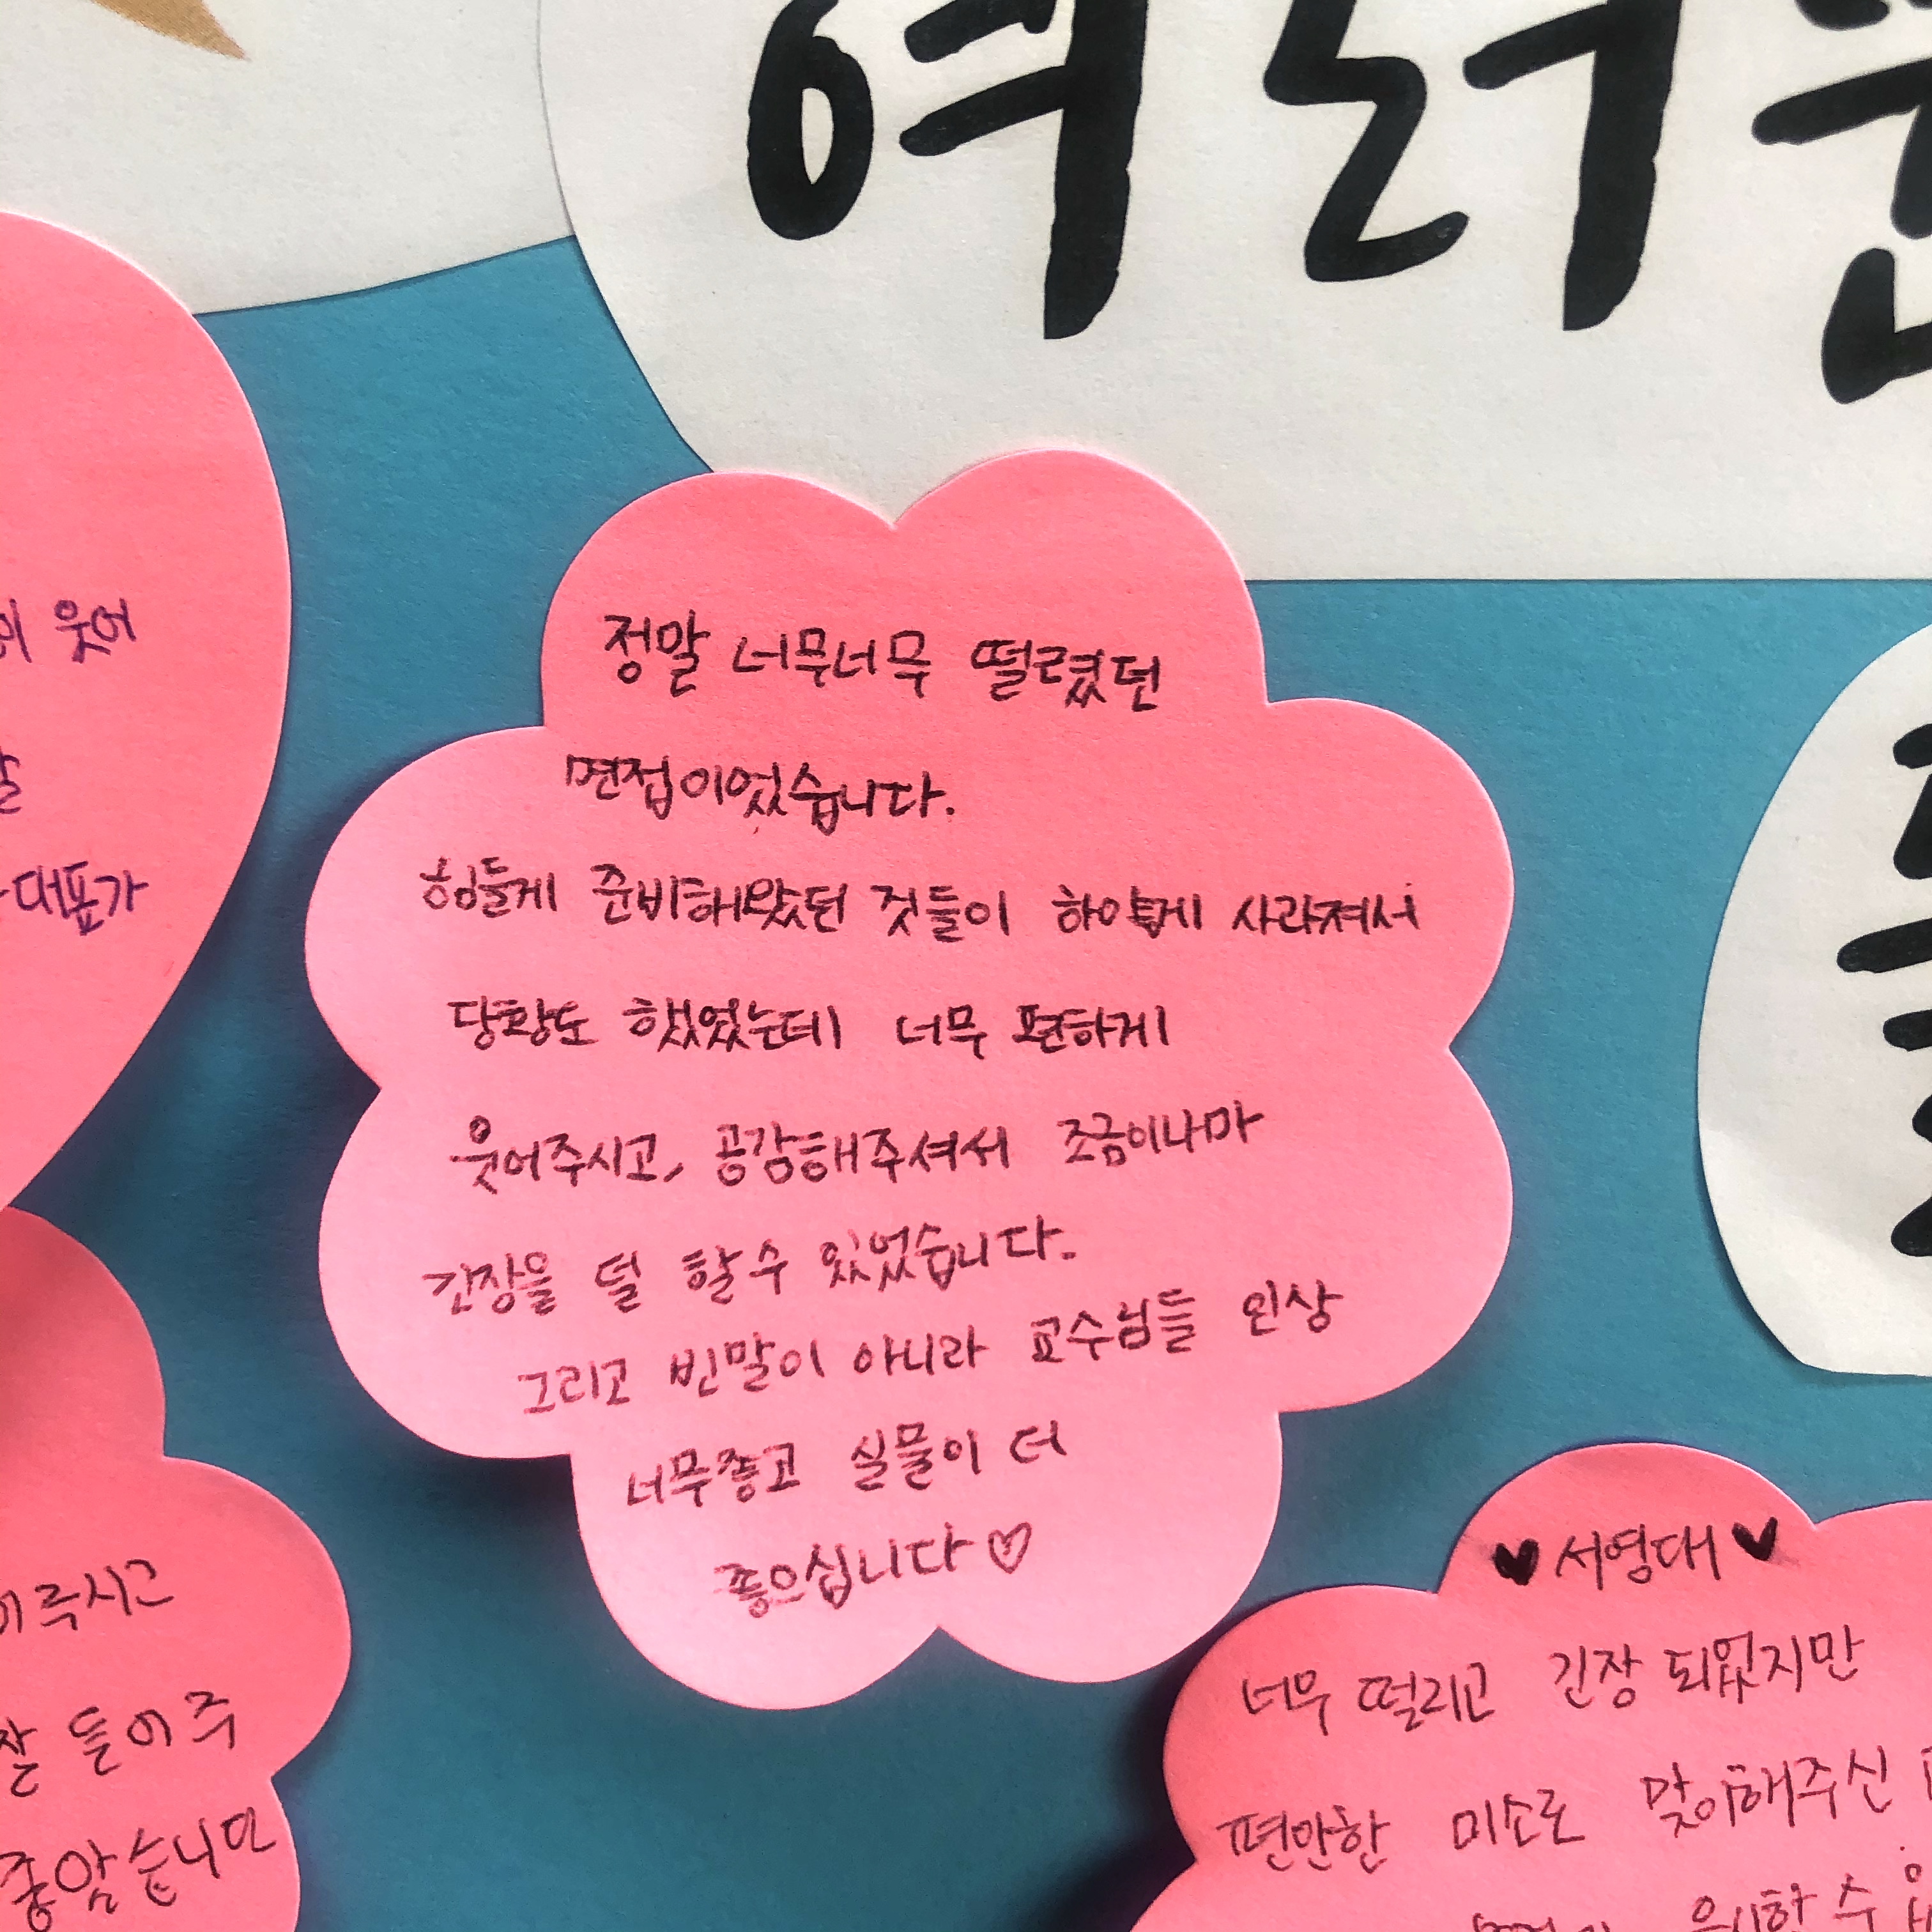 여러분
웃어
대표가
정말 너무너무 떨렸던
면접이었습니다.
힘들게 준비해왔던 것들이 하얗게 사라져서
당황도 했었는데 너무 편하게
웃어주시고, 공감해주셔서 조금이나마
긴장을 덜 할 수 있었습니다.
그리고 빈말이 아니라 교수님들 인상
너무좋고 실물이 더
좋으십니다♡
주시고
잘 들어주
좋았습니다
♥서영대♥
너무 떨리고 긴장 되었지만
편안한 미소로 맞이해주신
수